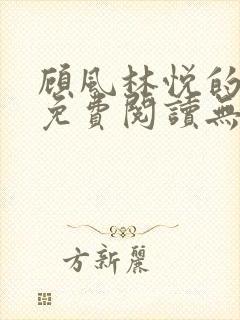 顾风林悦的
免費閱讀無
方新麗